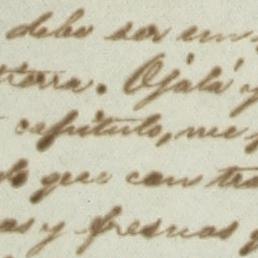 debe ser un
tierra. Ojalá y
capítulo, me
lo que con tra
as y fresnos g